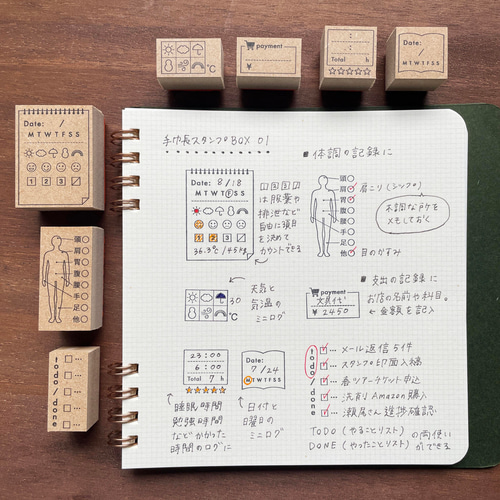 payment
¥
:
:
Total h
Date: /
M T W T F S S
°C
Date: /
M T W T F S S
1 2 3
頭
肩
胃
腹
腰
手
足
他
todo/done
手帳スタンプBOX 01
Date: 8/18
M T W T F S S
1 2 3
36.3℃/45kg
1 2 3
は服薬や
排泄など
自由に項目
を決めて
カウントできる
■ 体調の記録に
頭
肩
胃
腹
腰
手
足
他
肩こり(シンプ)
不調な所を
メモしておく
目のかすみ
30
°C
天気と
気温の
ミニログ
payment
文具代
¥ 2450
■ 支出の記録に
お店の名前や科目。
← 金額を記入
23:00
6:00
Total 7 h
睡眠時間
勉強時間
などかかった
時間のログに
7/24
M T W T F S S
日付と
曜日の
ミニログ
todo/done
… メール返信5件
… スタンプ印面入稿
… 春ツアーチケット申込
… 洗剤Amazon購入
… 瀬尾さん進捗確認
TODO (やることリスト)
DONE (やったことリスト)
の両使い
ができる